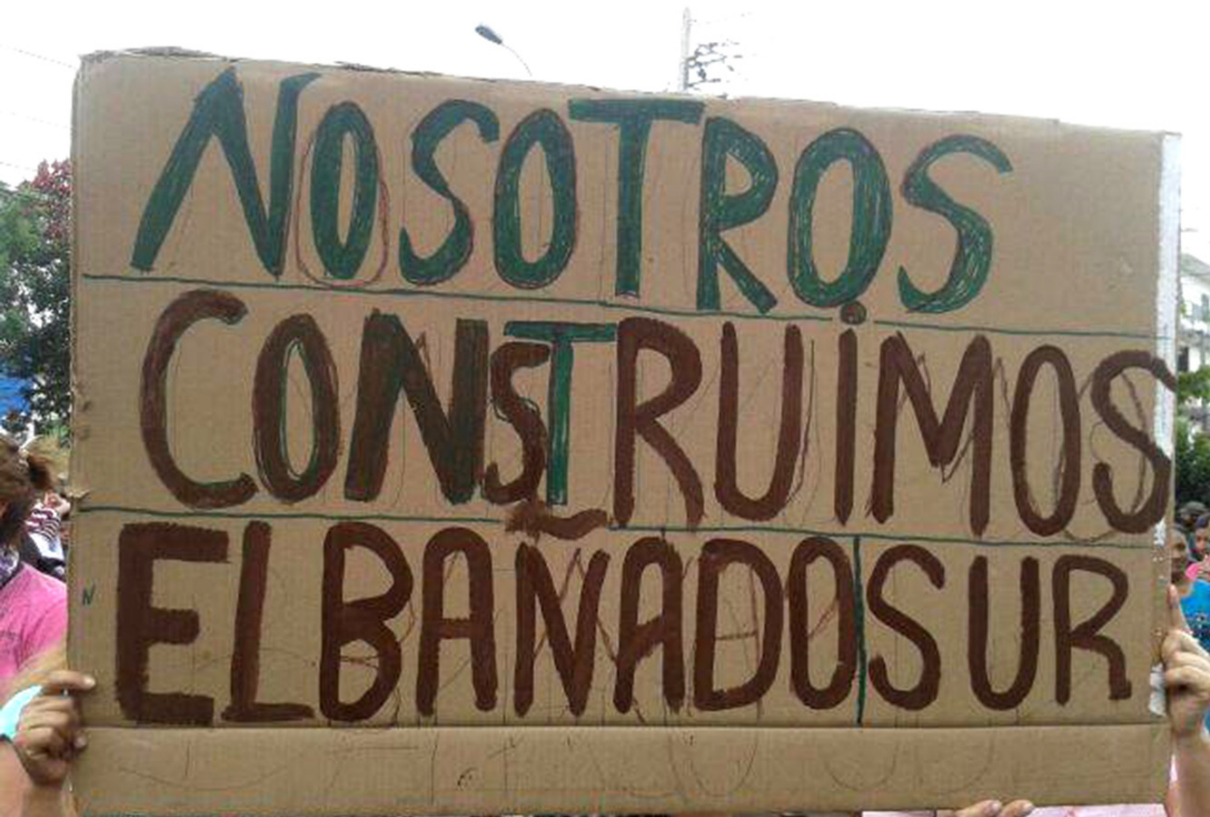 NOSOTROS
CONSTRUIMOS
EL BAÑADO SUR